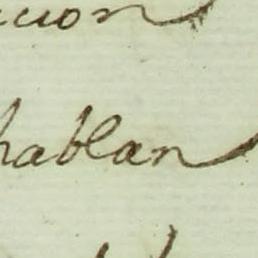 cion
hablan